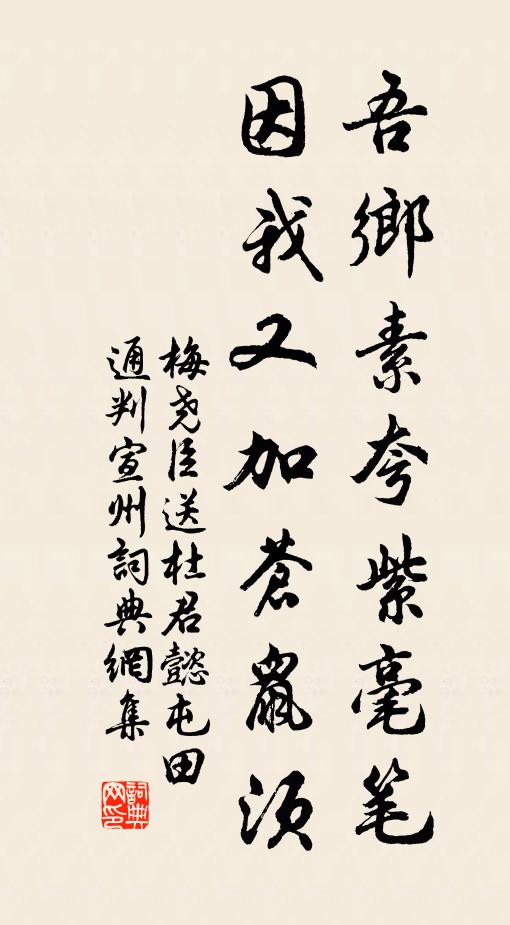 吾鄉素夸紫毫笔
因我又加蒼鼠須
梅尧臣送杜君懿屯田
通判宣州詞典網集
詞典网印